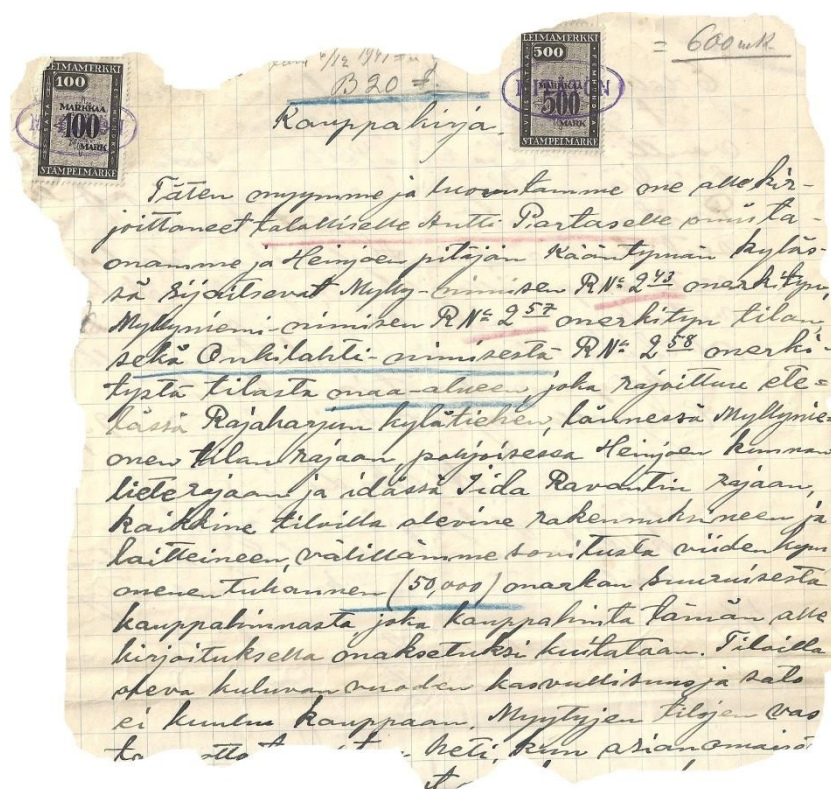 = 600 mk.
LEIMAMERKKI
100
MARKKAA
100
MARK
STAMPELMARKE
LEIMAMERKKI
500
MARKKAA
500
MARK
STAMPELMARKE
B 20
Kauppakirja.
Täten myymme ja luovutamme me allekir-
joittaneet talolliselle Antti Partaselle omista-
mamme ja Heinjoen pitäjän Kääntymän kyläs-
sä sijaitsevat Mylly-nimisen RNo 2 43 merkityn,
Myllyniemi-nimisen RNo 2 57 merkityn tilan,
sekä Onkilahti-nimisestä RNo 2 58 merki-
tystä tilasta maa-alueen, joka rajoittuu ete=
lässä Rajaharjun kylätiehen, lännessä Myllynie=
men tilan rajaan, pohjoisessa Heinjoen kunnan
rajaan ja idässä Iida Ravantin rajaan,
kaikkine tiloilla olevine rakennuksineen ja
laitteineen, välillämme sovitusta viidenkym
menentuhannen (50,000) markan suuruisesta
kauppahinnasta, joka kauppahinta tämän alle
kirjoituksella maksetuksi kuitataan. Tiloilla
oleva kuluvan vuoden kasvullisuus ja sato
ei kuulu kauppaan. Myytyjen tilojen vas
heti, kun asianomaiso